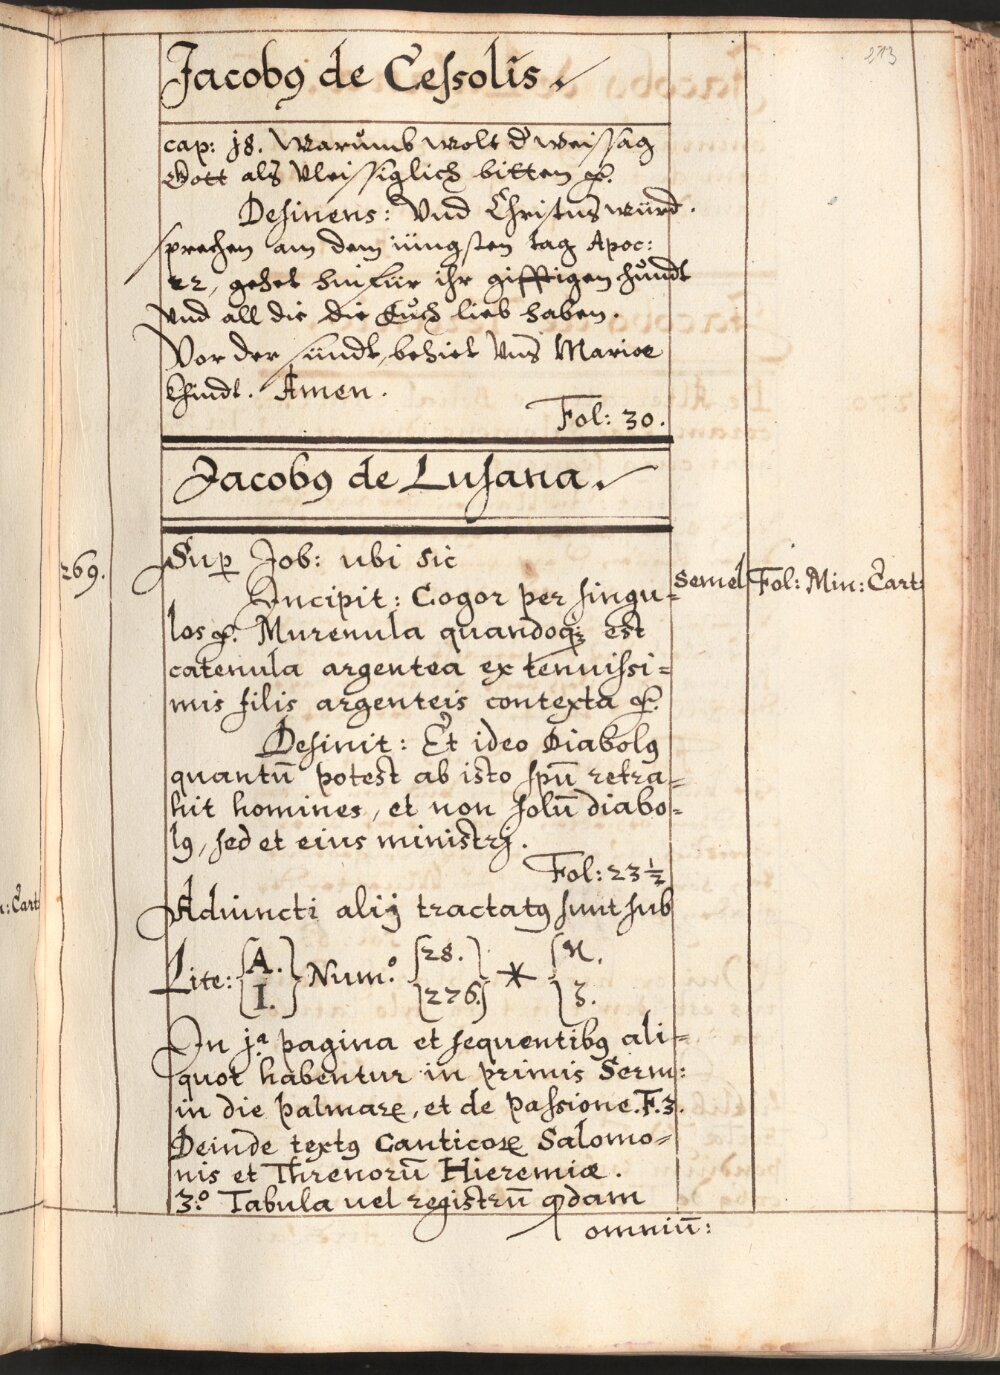 273
Jacobꝰ de Ceſsolis
cap: j8. Warumb wolt d' weiſsag
Gott als vleiſsiglich bitten ꝛc.
Deſinens: Vnd Chriſtus würd
ſprechen am dem iüngſten tag Apoc:
22, gehet hinfür ihr gifftigen hundt
vnd all die die Euch lieb haben.
Vor der ſündt, behiet vns Mariæ
Khindt. Amen.
Fol: 30.
Jacobꝰ de Luſana
269.
Sup Job: ubi sic
Incipit: Cogor per ſingu=
los ꝛc. Murenula quandoq; est
catenula argentea ex tenuiſsi=
mis filis argenteis contexta ꝛc.
semel
Fol: Min: Cart:
Deſinit: Et ideo Diabolꝰ
quantū potest ab isto ſpū retra=
hit homines, et non ſolū diabo=
lꝰ, ſed et eius ministrj.
Fol: 23 ½
: Cart
Adiuncti alij tractatꝰ ſunt ſub
Lite: {A. I.} Num.º {28. 226.} * {N. 3.
In j.ª pagina et ſequentibꝰ ali=
quot habentur in primis Serm:
in die palmarꝝ, et de paſsione. F. 3.
Deinde textꝰ Canticorꝝ Salomo=
nis et Threnorū Hieremiæ.
3.º Tabula uel registrū qdam
omniū: